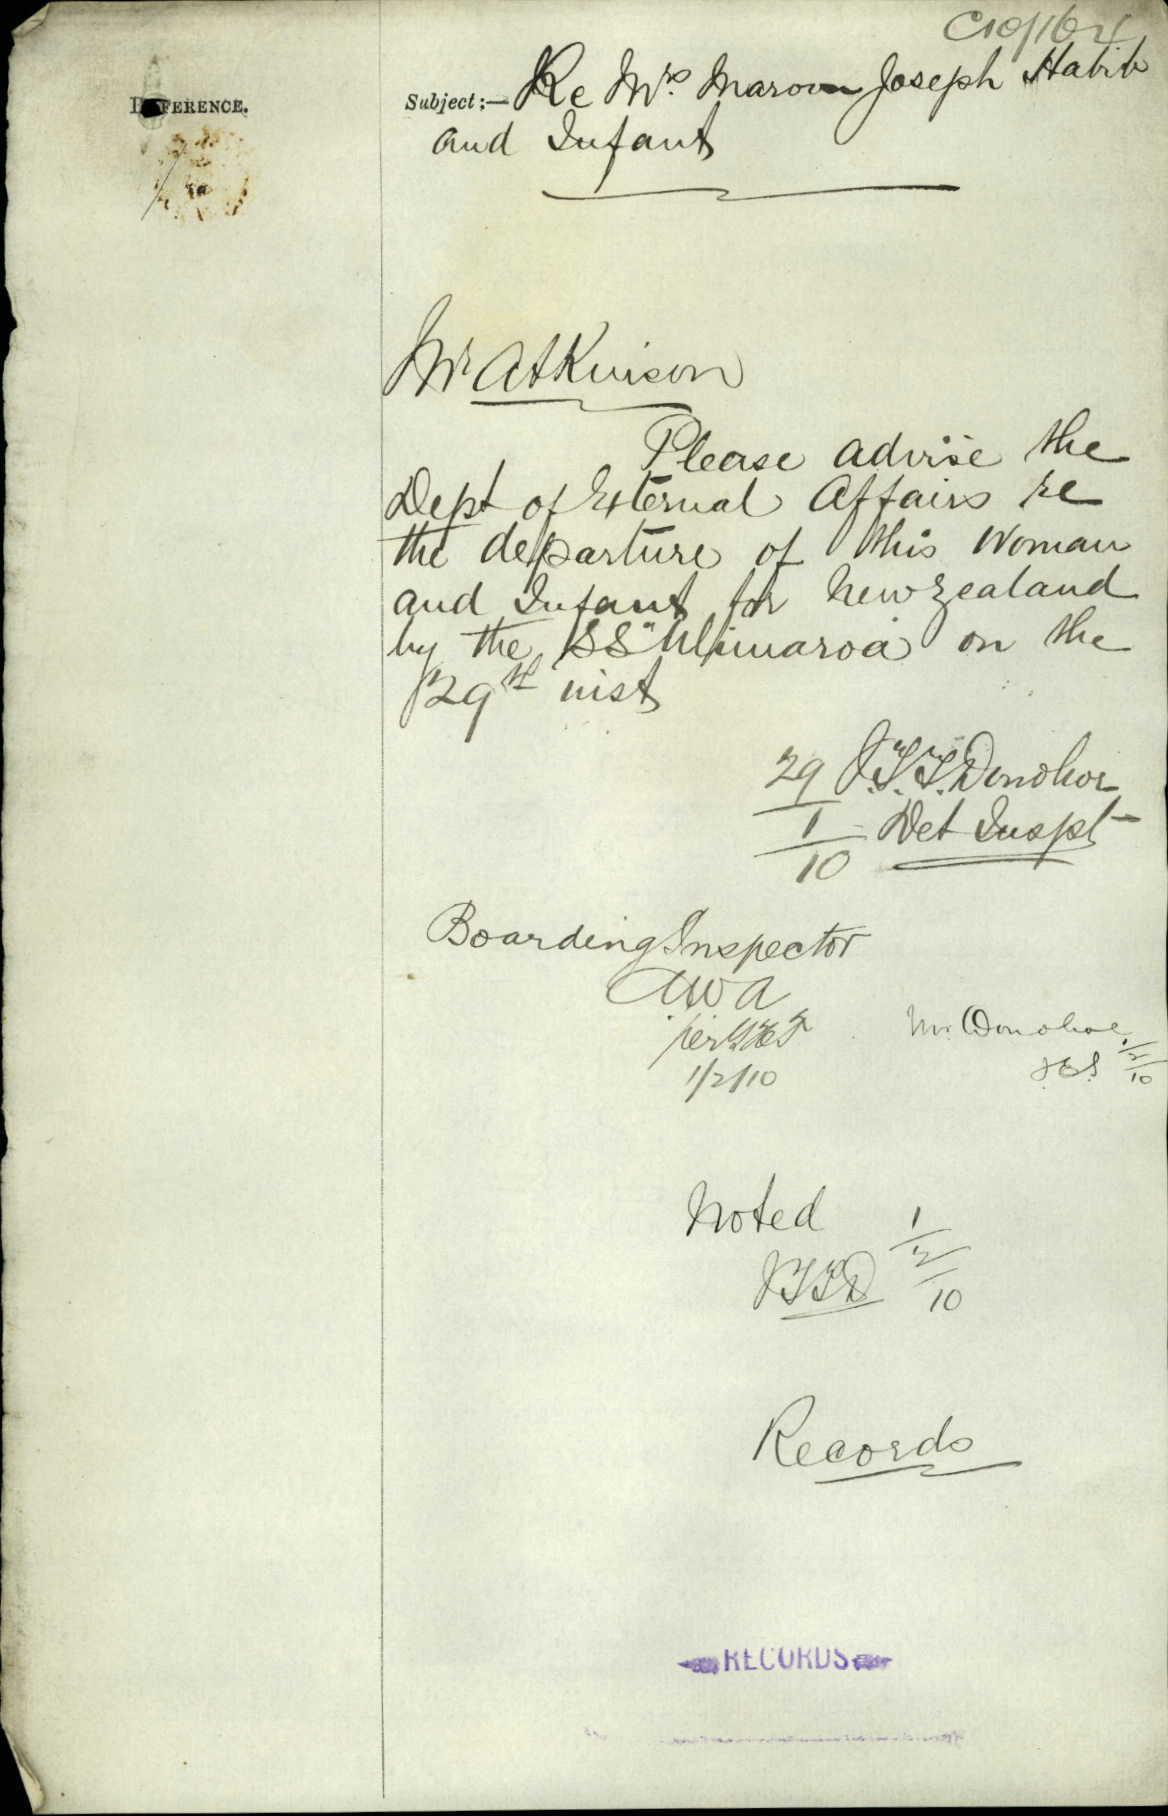 C10/164
REFERENCE.
Subject:— Re Mrs Maroon Joseph Habib
and Infant
Mr Atkinson
Please advise the
Dept of External Affairs re
the departure of this woman
and Infant for New Zealand
by the SS "Ulimaroa" on the
29th inst
29 J.T.T. Donohoe
1 Det Inspt
10
Boarding Inspector
AWA
per
1/2/10
Mr Donohoe
1/2/10
Noted 1/2/10
JTTD
Records
RECORDS